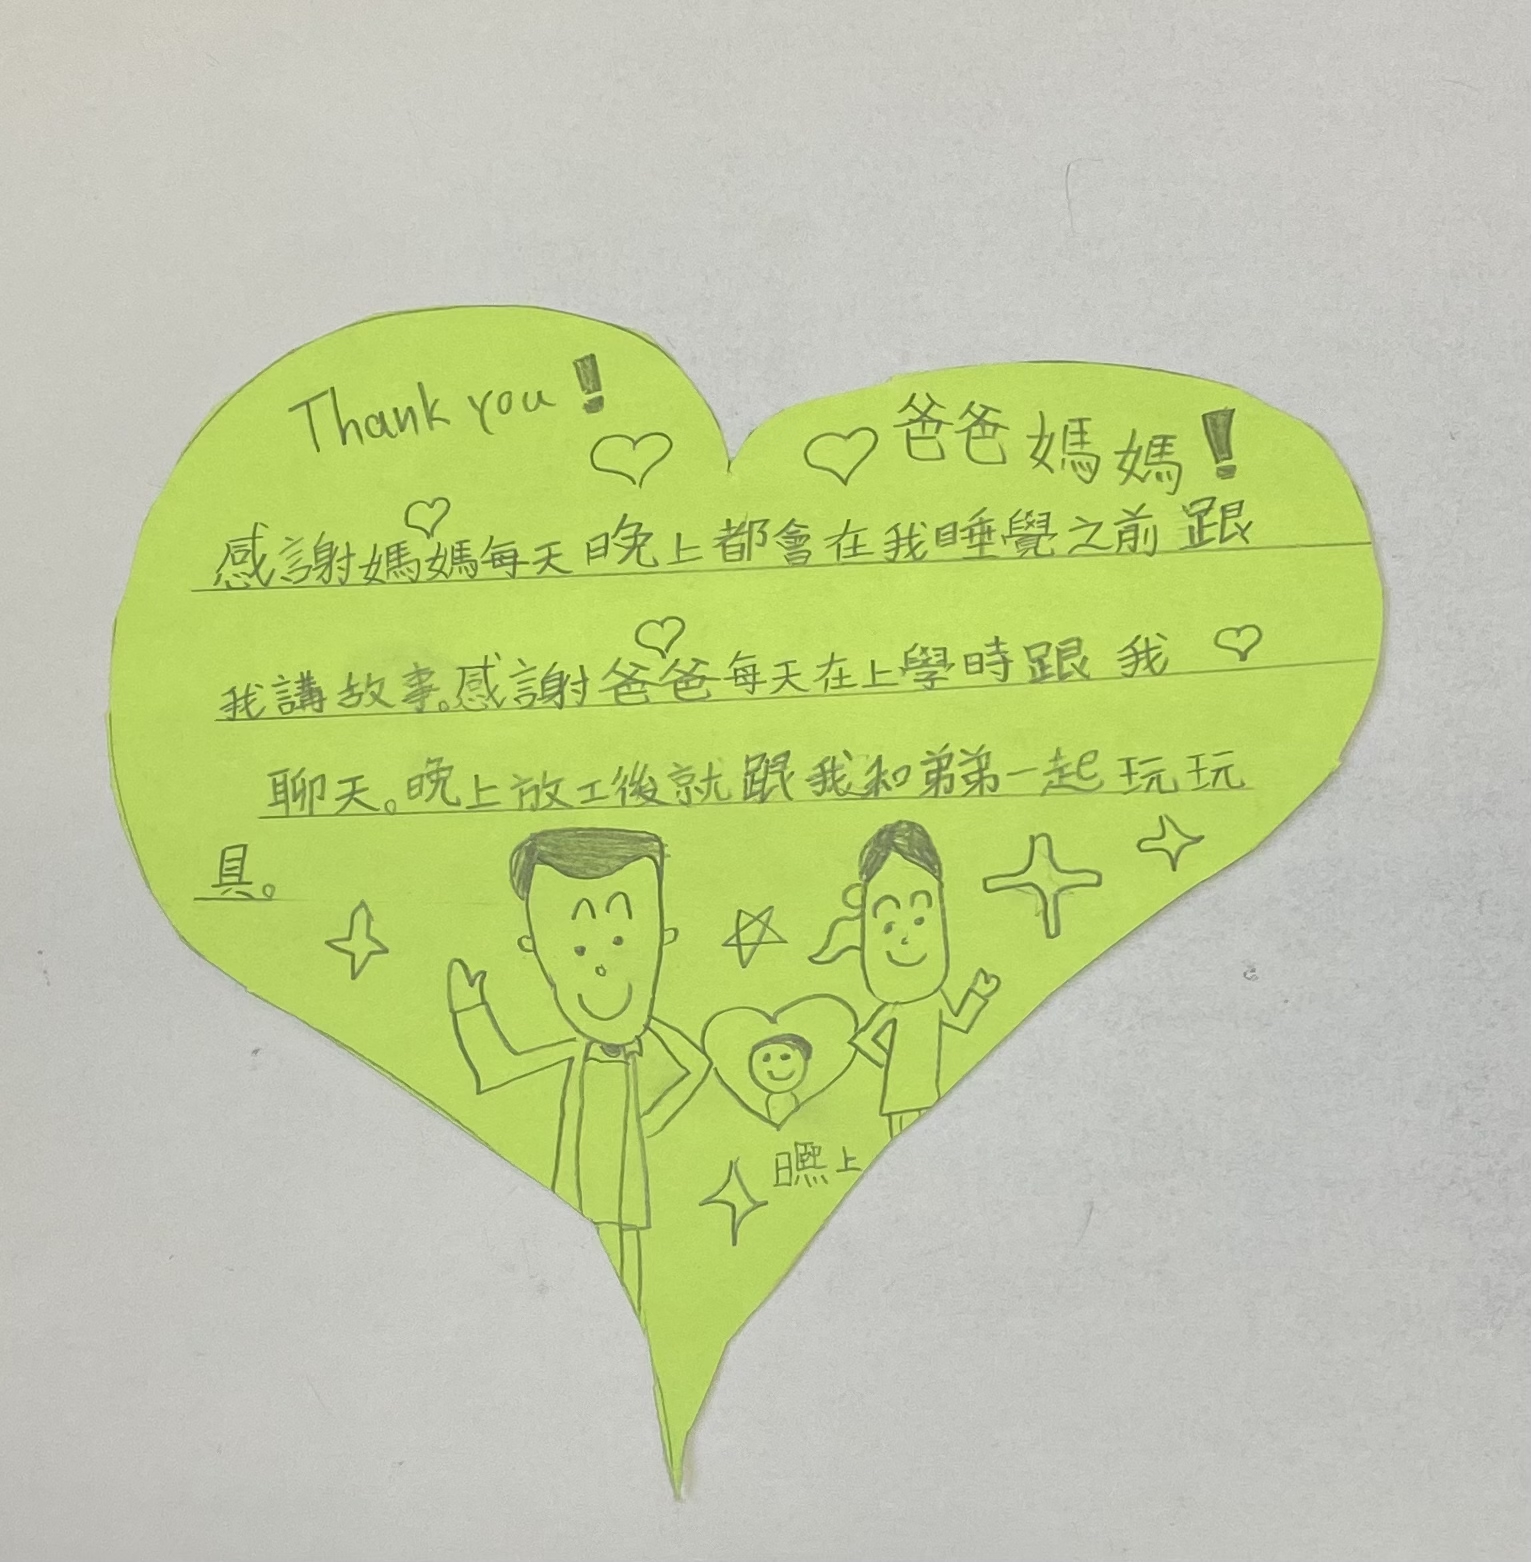 Thank you! 爸爸媽媽!
感謝媽媽每天晚上都會在我睡覺之前跟
我講故事。感謝爸爸每天在上學時跟我
聊天。晚上放工後就跟我和弟弟一起玩玩
具。
曣上